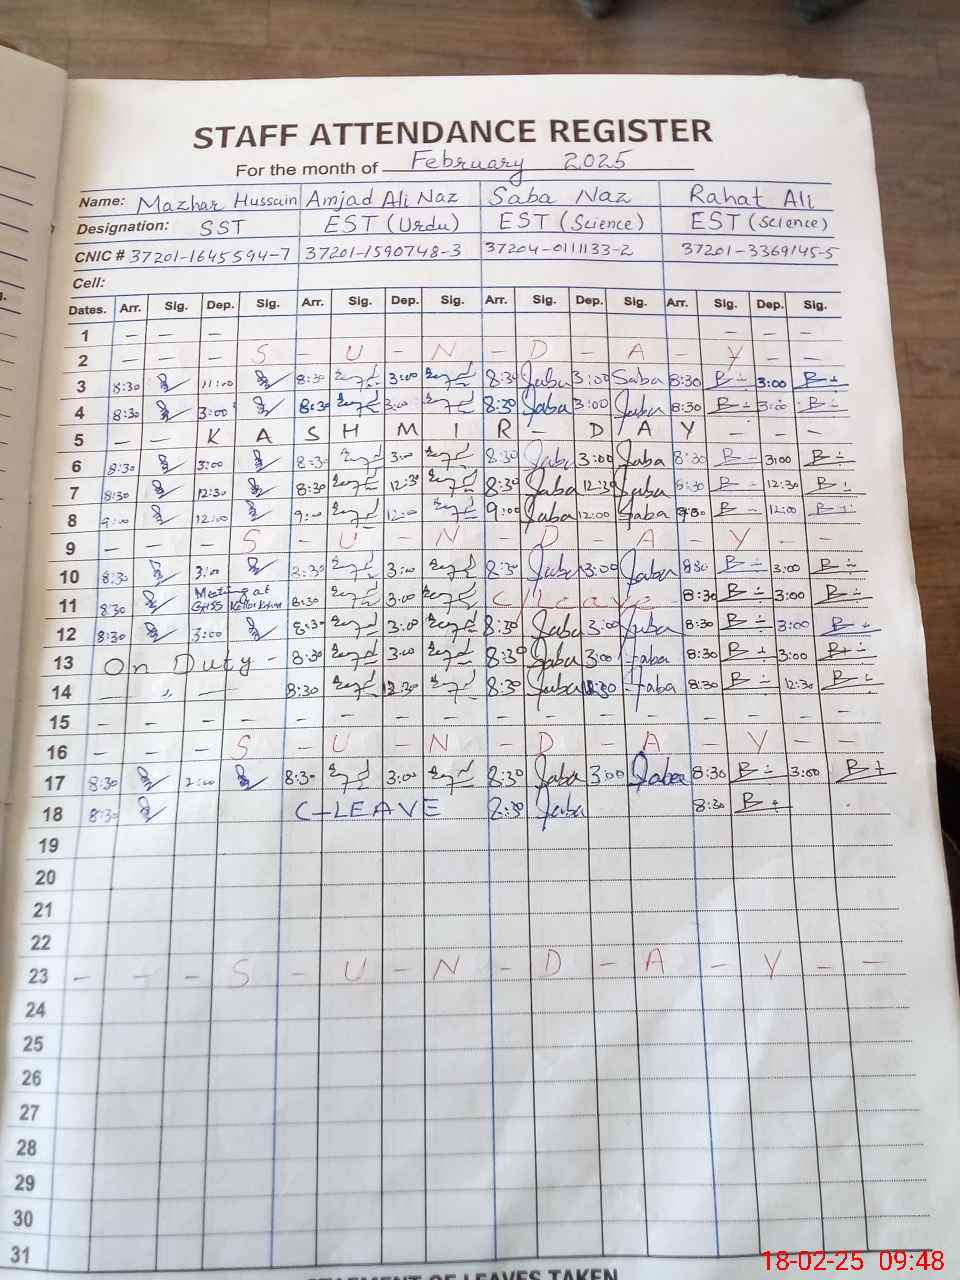 STAFF ATTENDANCE REGISTER
For the month of February 2025
Name: Mazhar Hussain Amjad Ali Naz Saba Naz Rahat Ali
Designation: SST EST (Urdu) EST (Science) EST (Science)
CNIC # 37201-1645594-7 37201-1590748-3 37204-0111133-2 37201-3369145-5
Cell:
Dates. Arr. Sig. Dep. Sig. Arr. Sig. Dep. Sig. Arr. Sig. Dep. Sig. Arr. Sig. Dep. Sig.
1 - - - - - - -
2 - - - S - U - N - D - A - Y - -
3 8:30 11:00 8:30 3:00 8:30 Saba 3:00 Saba 8:30 3:00
4 8:30 3:00 8:30 3:00 8:30 Saba 3:00 Saba 8:30 3:00
5 - - K A S H M I R - D A Y - - -
6 8:30 3:00 8:30 3:00 8:30 Saba 3:00 Saba 8:30 3:00
7 8:30 12:30 8:30 12:30 8:30 Saba 12:30 Saba 8:30 12:30
8 9:00 12:00 9:00 12:00 9:00 Saba 12:00 Saba 12:00
9 - - - S - U - N - D - A - Y - -
10 8:30 3:00 3:00 8:30 Saba 3:00 Saba 8:30 3:00
11 8:30 Meeting at GHSS 8:30 3:00 C/Leave - 8:30 3:00
12 8:30 3:00 8:30 3:00 8:30 Saba 3:00 Saba 8:30 3:00
13 On Duty - 8:30 3:00 8:30 Saba 3:00 Saba 8:30 3:00
14 — 〃 — 8:30 12:30 8:30 Saba Saba 8:30 12:30
15 - - - - - - - - - - - - - - - -
16 - - - S - U - N - D - A - Y - -
17 8:30 2:00 8:30 3:00 8:30 Saba 3:00 Saba 8:30 3:00
18 8:30 C-LEAVE 8:30 Saba 8:30
19
20
21
22
23 - - S - U - N - D - A - Y - -
24
25
26
27
28
29
30
31
STATEMENT OF LEAVES TAKEN
18-02-25 09:48